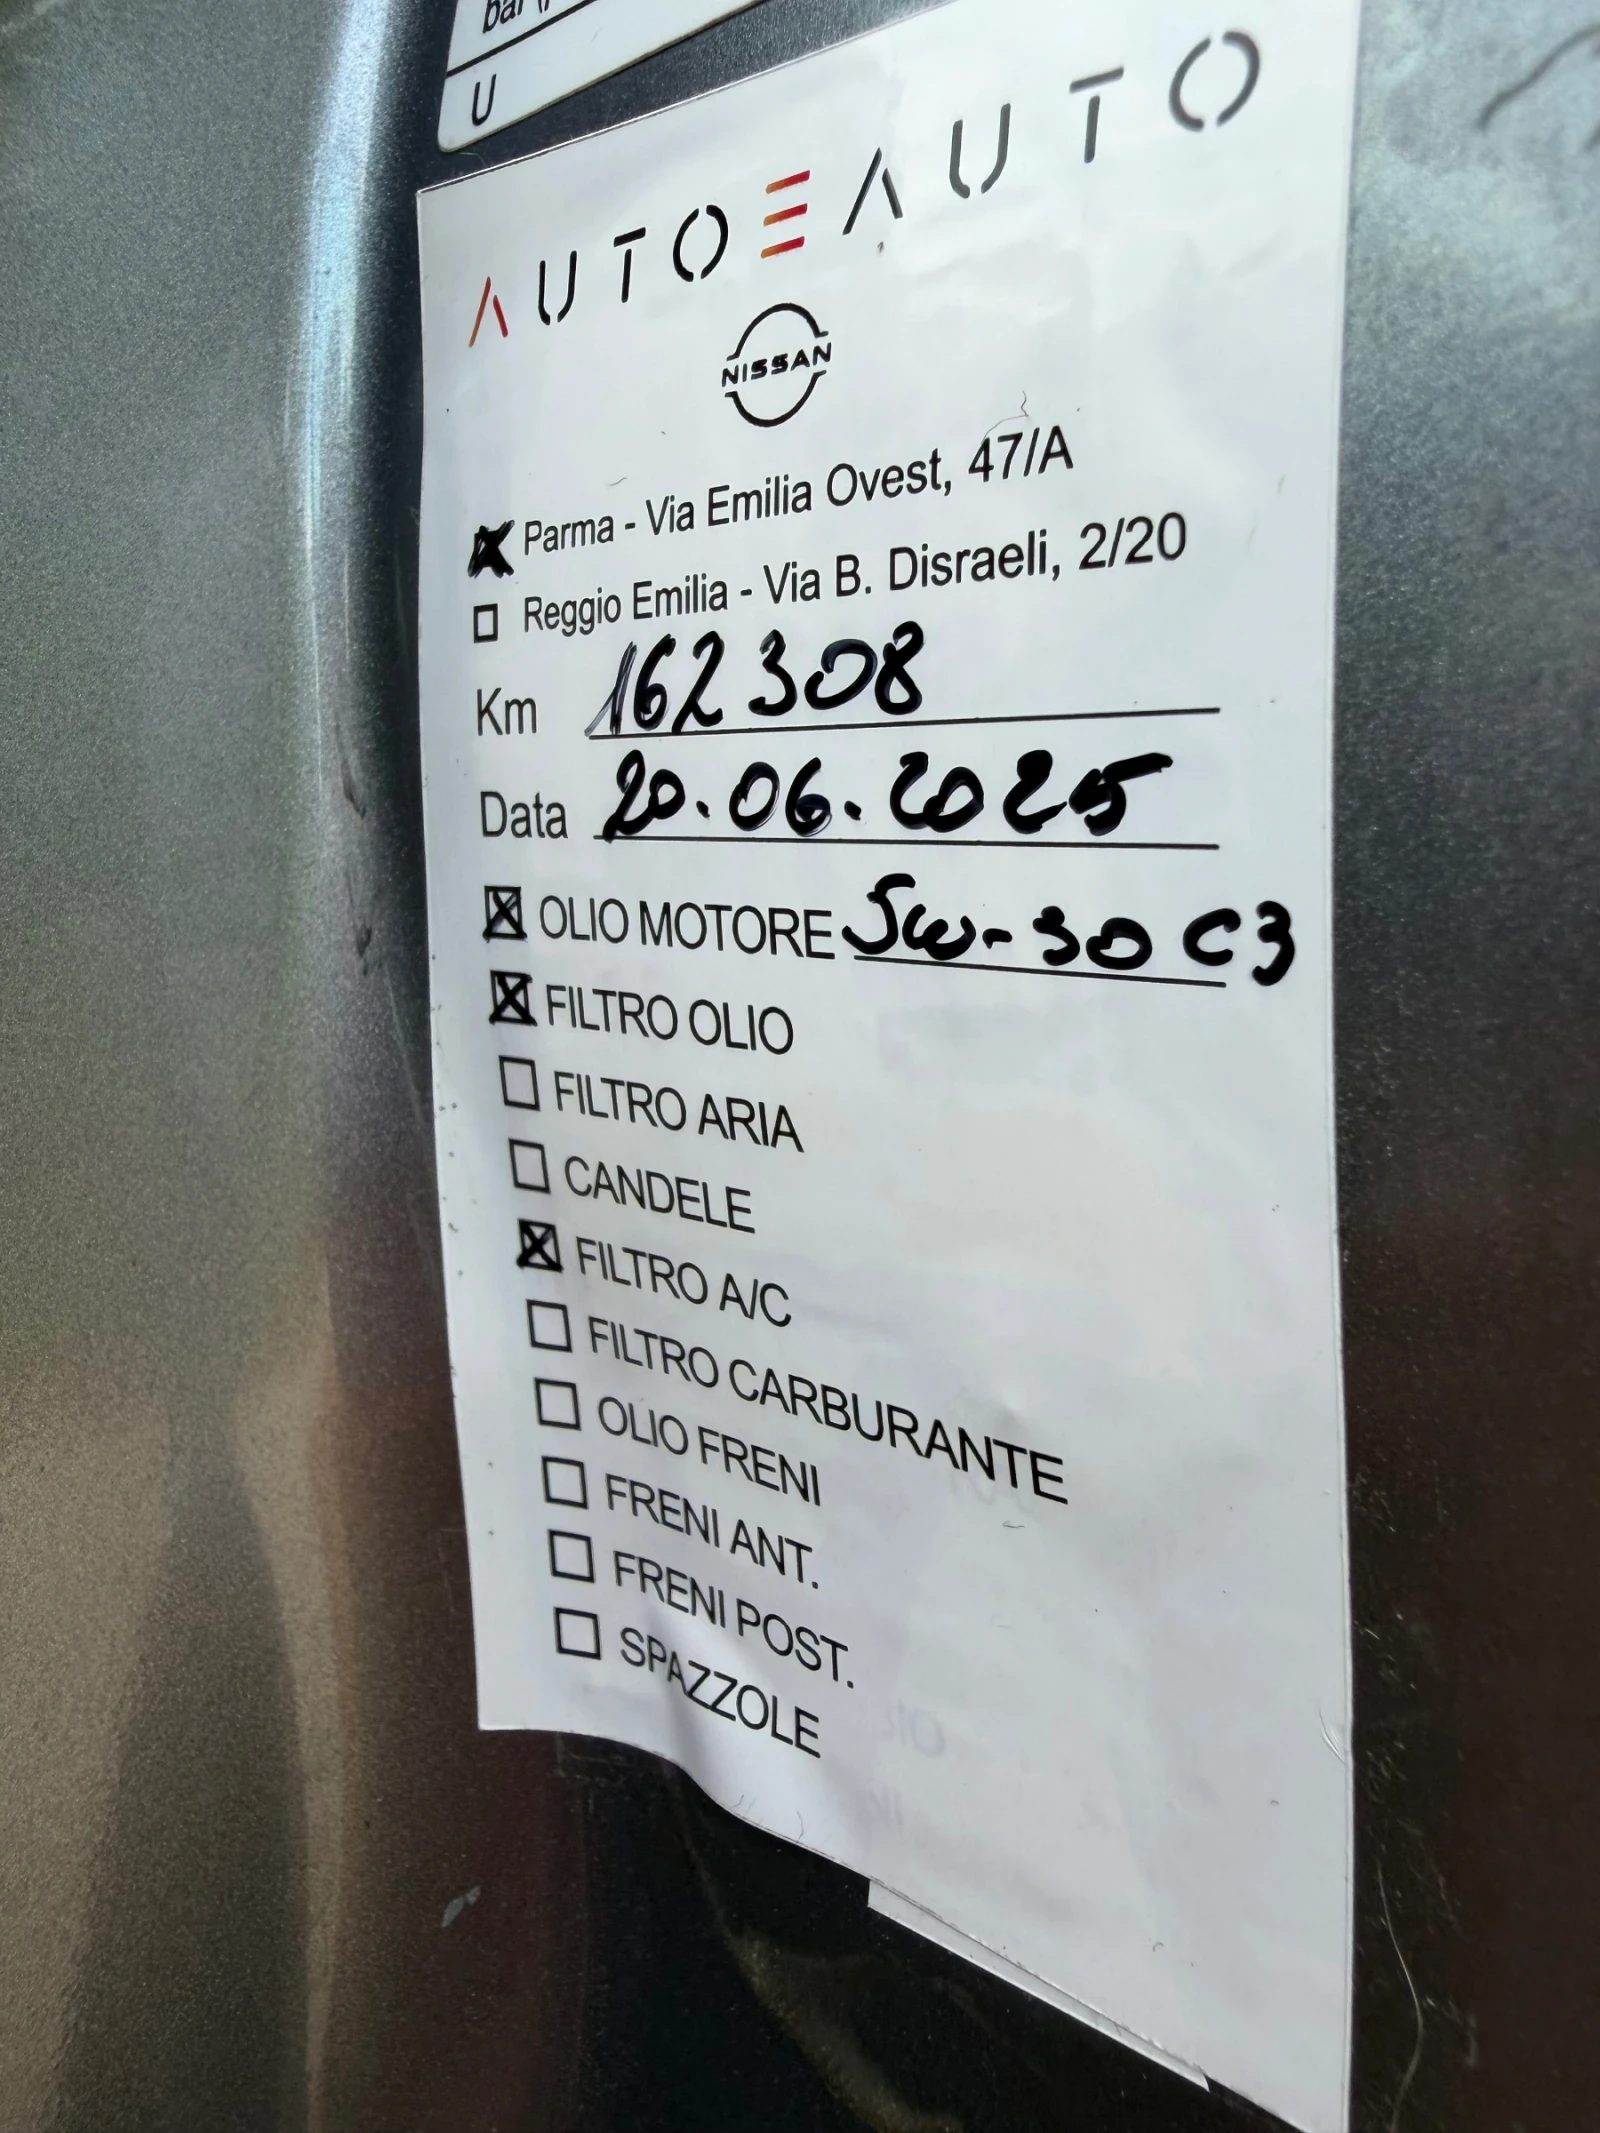 U
AUTOEAUTO
NISSAN
Parma - Via Emilia Ovest, 47/A
Reggio Emilia - Via B. Disraeli, 2/20
Km 162308
Data 20.06.2025
OLIO MOTORE 5w-30 C3
FILTRO OLIO
FILTRO ARIA
CANDELE
FILTRO A/C
FILTRO CARBURANTE
OLIO FRENI
FRENI ANT.
FRENI POST.
SPAZZOLE